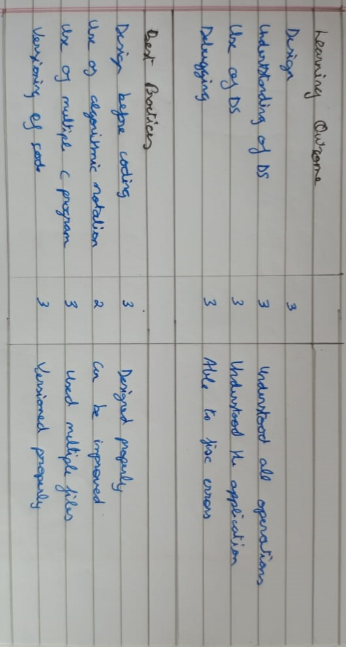 Learning Outcome
Design 3
Understanding of DS 3 Understood all operations
Use of DS 3 Understood the application
Debugging 3 Able to fix errors
Best Practices
Design before coding 3 Designed properly
Use of algorithmic notation 2 Can be improved
Use of multiple C program 3 Used multiple files
Versioning of code 3 Versioned properly